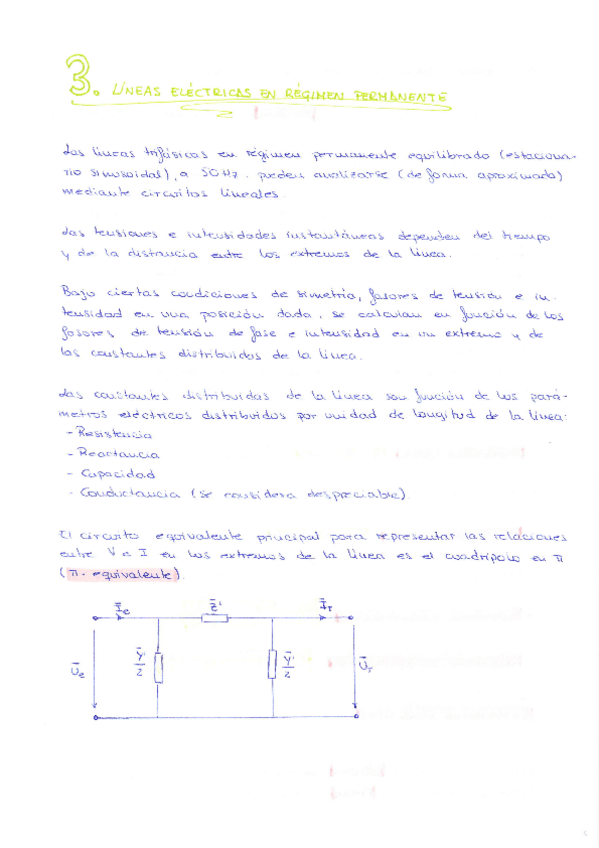 3. LÍNEAS ELÉCTRICAS EN RÉGIMEN PERMANENTE
Las líneas trifásicas en régimen permanente equilibrado (estaciona-
rio sinusoidal), a 50Hz. pueden analizarse (de forma aproximada)
mediante circuitos lineales.
Las tensiones e intensidades instantáneas dependen del tiempo
y de la distancia entre los extremos de la línea.
Bajo ciertas condiciones de simetría, fasores de tensión e in-
tensidad en una posición dada, se calculan en función de los
fasores de tensión de fase e intensidad en un extremo y de
las constantes distribuidas de la línea.
Las constantes distribuidas de la línea son función de los pará-
metros eléctricos distribuidos por unidad de longitud de la línea:
- Resistencia
- Reactancia
- Capacidad
- Conductancia (se considera despreciable).
El circuito equivalente principal para representar las relaciones
entre V e I en los extremos de la línea es el cuadripolo en π
(π-equivalente).
Īe Z̄' Īr
Ūe Ȳ'/2 Ȳ'/2 Ūr